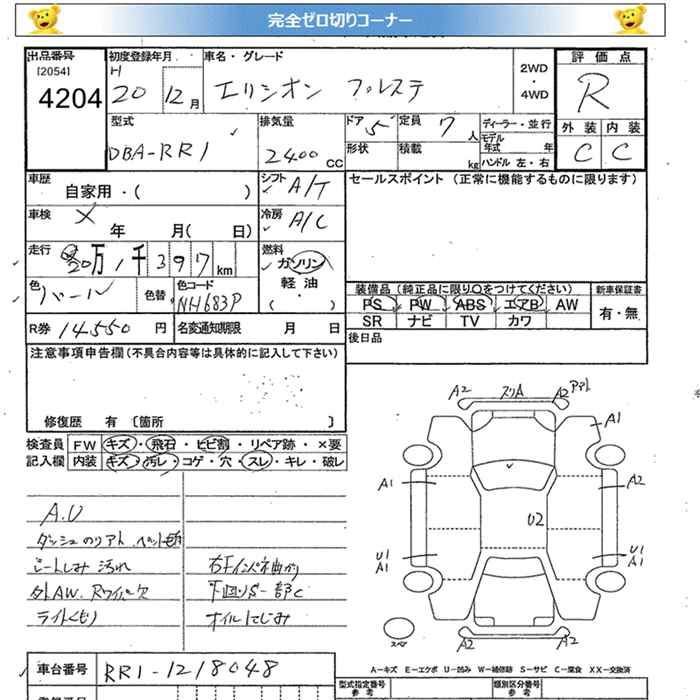 完全ゼロ切りコーナー
出品番号
[2054]
4204
初度登録年月
H
20 12月
車名・グレード
エリシオン プレステ
2WD
・
4WD
評価点
R
外装 内装
C C
型式
DBA-RR1
排気量
2400 CC
ドア 5
定員 7人
ディーラー・並行
モデル
年式 年
形状
積載 kg
ハンドル 左・右
車歴
自家用・( )
シフト A/T
セールスポイント (正常に機能するものに限ります)
車検 X 年 月( 日)
冷房 A/C
走行 20万1千397km
燃料
ガソリン
軽油
・
( )
色 パール
色替
色コード
NH683P
装備品(純正品に限り○をつけてください)
新車保証書
PS PW ABS エアB AW
有・無
SR ナビ TV カワ
R券 14550円
名変通知期限 月 日
後日品
注意事項申告欄(不具合内容等は具体的に記入して下さい)
修復歴 有 〔箇所 〕
検査員 FW キズ・飛石・ヒビ割・リペア跡・×要
記入欄 内装 キズ・汚レ・コゲ・穴・スレ・キレ・破レ
A2 スリA A2
A1
A1 A2
U2
U1 U1
A1 A1
スペア
A2 A2
シートしみ 汚れ
外AW. Rワイパー欠
ライトくもり
右Fインパネ曲り
下回りS 一部C
オイルにじみ
車台番号 RR1-1218048
A－キズ E－エクボ U－凹み W－補修跡 S－サビ C－腐食 XX－交換済
型式指定番号
参考
類別区分番号
参考